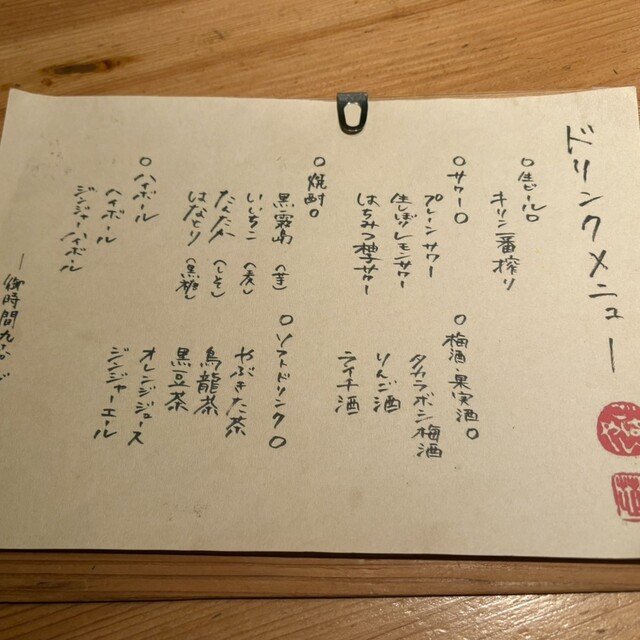 ドリンクメニュー
○生ビール○
キリン一番搾り
○サワー○
プレーンサワー
生しぼりレモンサワー
はちみつ柚子サワー
○梅酒・果実酒○
タカラボシ梅酒
りんご酒
ライチ酒
○焼酎○
黒霧島（芋）
いいちこ（麦）
たんたかたん（しそ）
はなとり（黒糖）
○ソフトドリンク○
やぶきた茶
烏龍茶
黒豆茶
オレンジジュース
ジンジャーエール
○ハイボール
ハイボール
ジンジャーハイボール